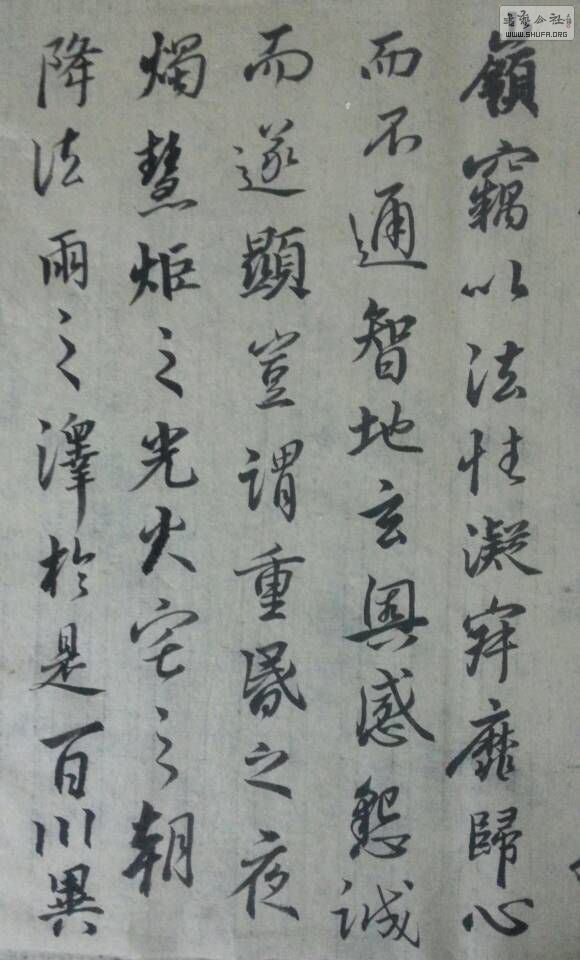 嶺竊以法性凝寂靡歸心
而不通智地玄奧感懇誠
而遂顯豈謂重昏之夜
燭慧炬之光火宅之朝
降法雨之澤於是百川異
WWW.SHUFA.ORG